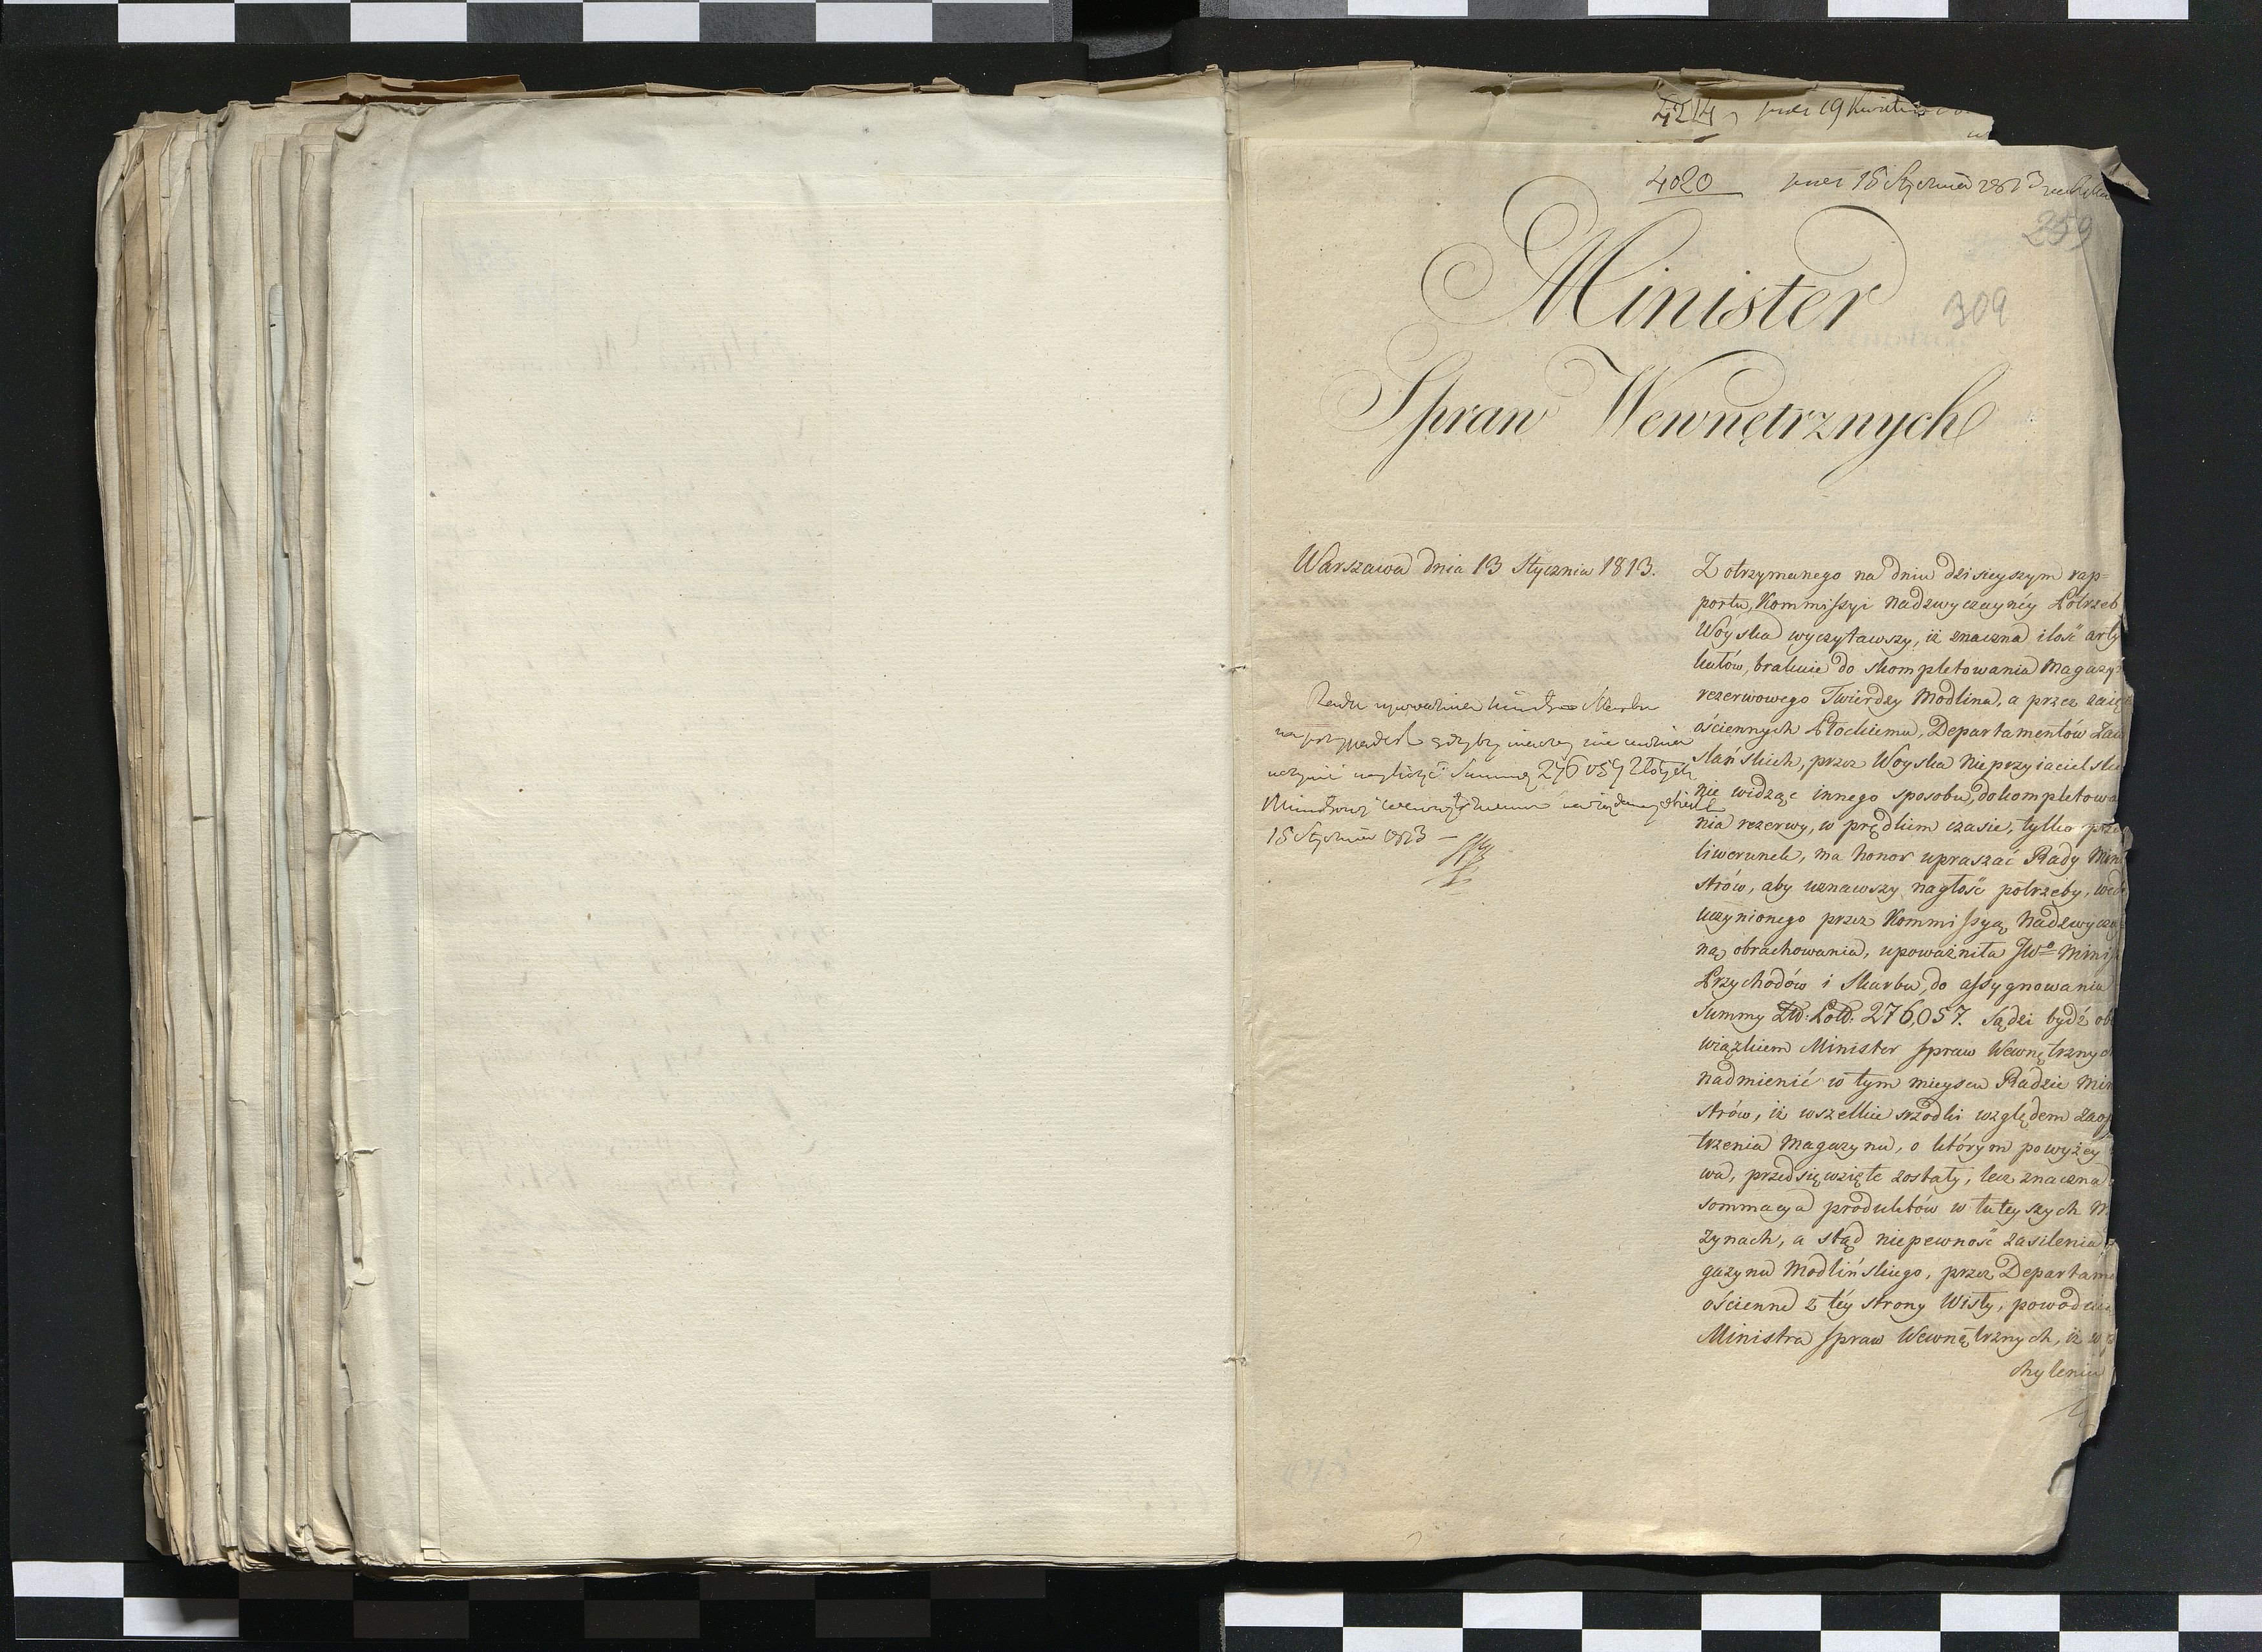 4214
19
4020 15 Stycznia 1813
259
Minister
309
Spraw Wewnętrznych
Warszawa dnia 13 Stycznia 1813.
Rada upoważnia Ministra Skarbu
na przypadek gdyby inaczey nie można
uczynić Summę 276057 Złotych
Ministrowi
15 Stycznia 1813 —
Z otrzymanego na dniu dzisieyszym rap=
portu, Kommissyi Nadzwyczaynéy Potrzeb
Woyska wyczytawszy, iż znaczna ilość arty
kułów, brakuie do skompletowania Magazy
rezerwowego Twierdzy Modlina, a przez zaię
ościennych Płockiemu, Departamentów Zaw
slańskich, przez Woyska Nieprzyiacielskie
nie widząc innego sposobu, do kompletowa
nia rezerwy, w prędkim czasie, tylko prze
liwerunek, ma honor upraszać Rady Mini
strów, aby uznawszy nagłość potrzeby, wedł
uczynionego przez Kommissyą Nadzwyczay
ną obrachowania, upoważniła JWo Minis
Przychodów i Skarbu, do assygnowania
Summy Zło: Pol: 276,057. Sądzi bydź obo
wiązkiem Minister Spraw Wewnętrznych
nadmienić w tym mieyscu Radzie Mini
strów, iż wszelkie srzodki względem zaop
trzenia Magazynu, o którym powyżéy
wa, przedsięwzięte zostały, lecz znaczna
sommacya produktów w tuteyszych M
zynach, a stąd niepewność zasilenia
gazynu Modlińskiego, przez Departame
ościenne z téy strony Wisły, powoduie
Ministra Spraw Wewnętrznych, iż w
chyleniu